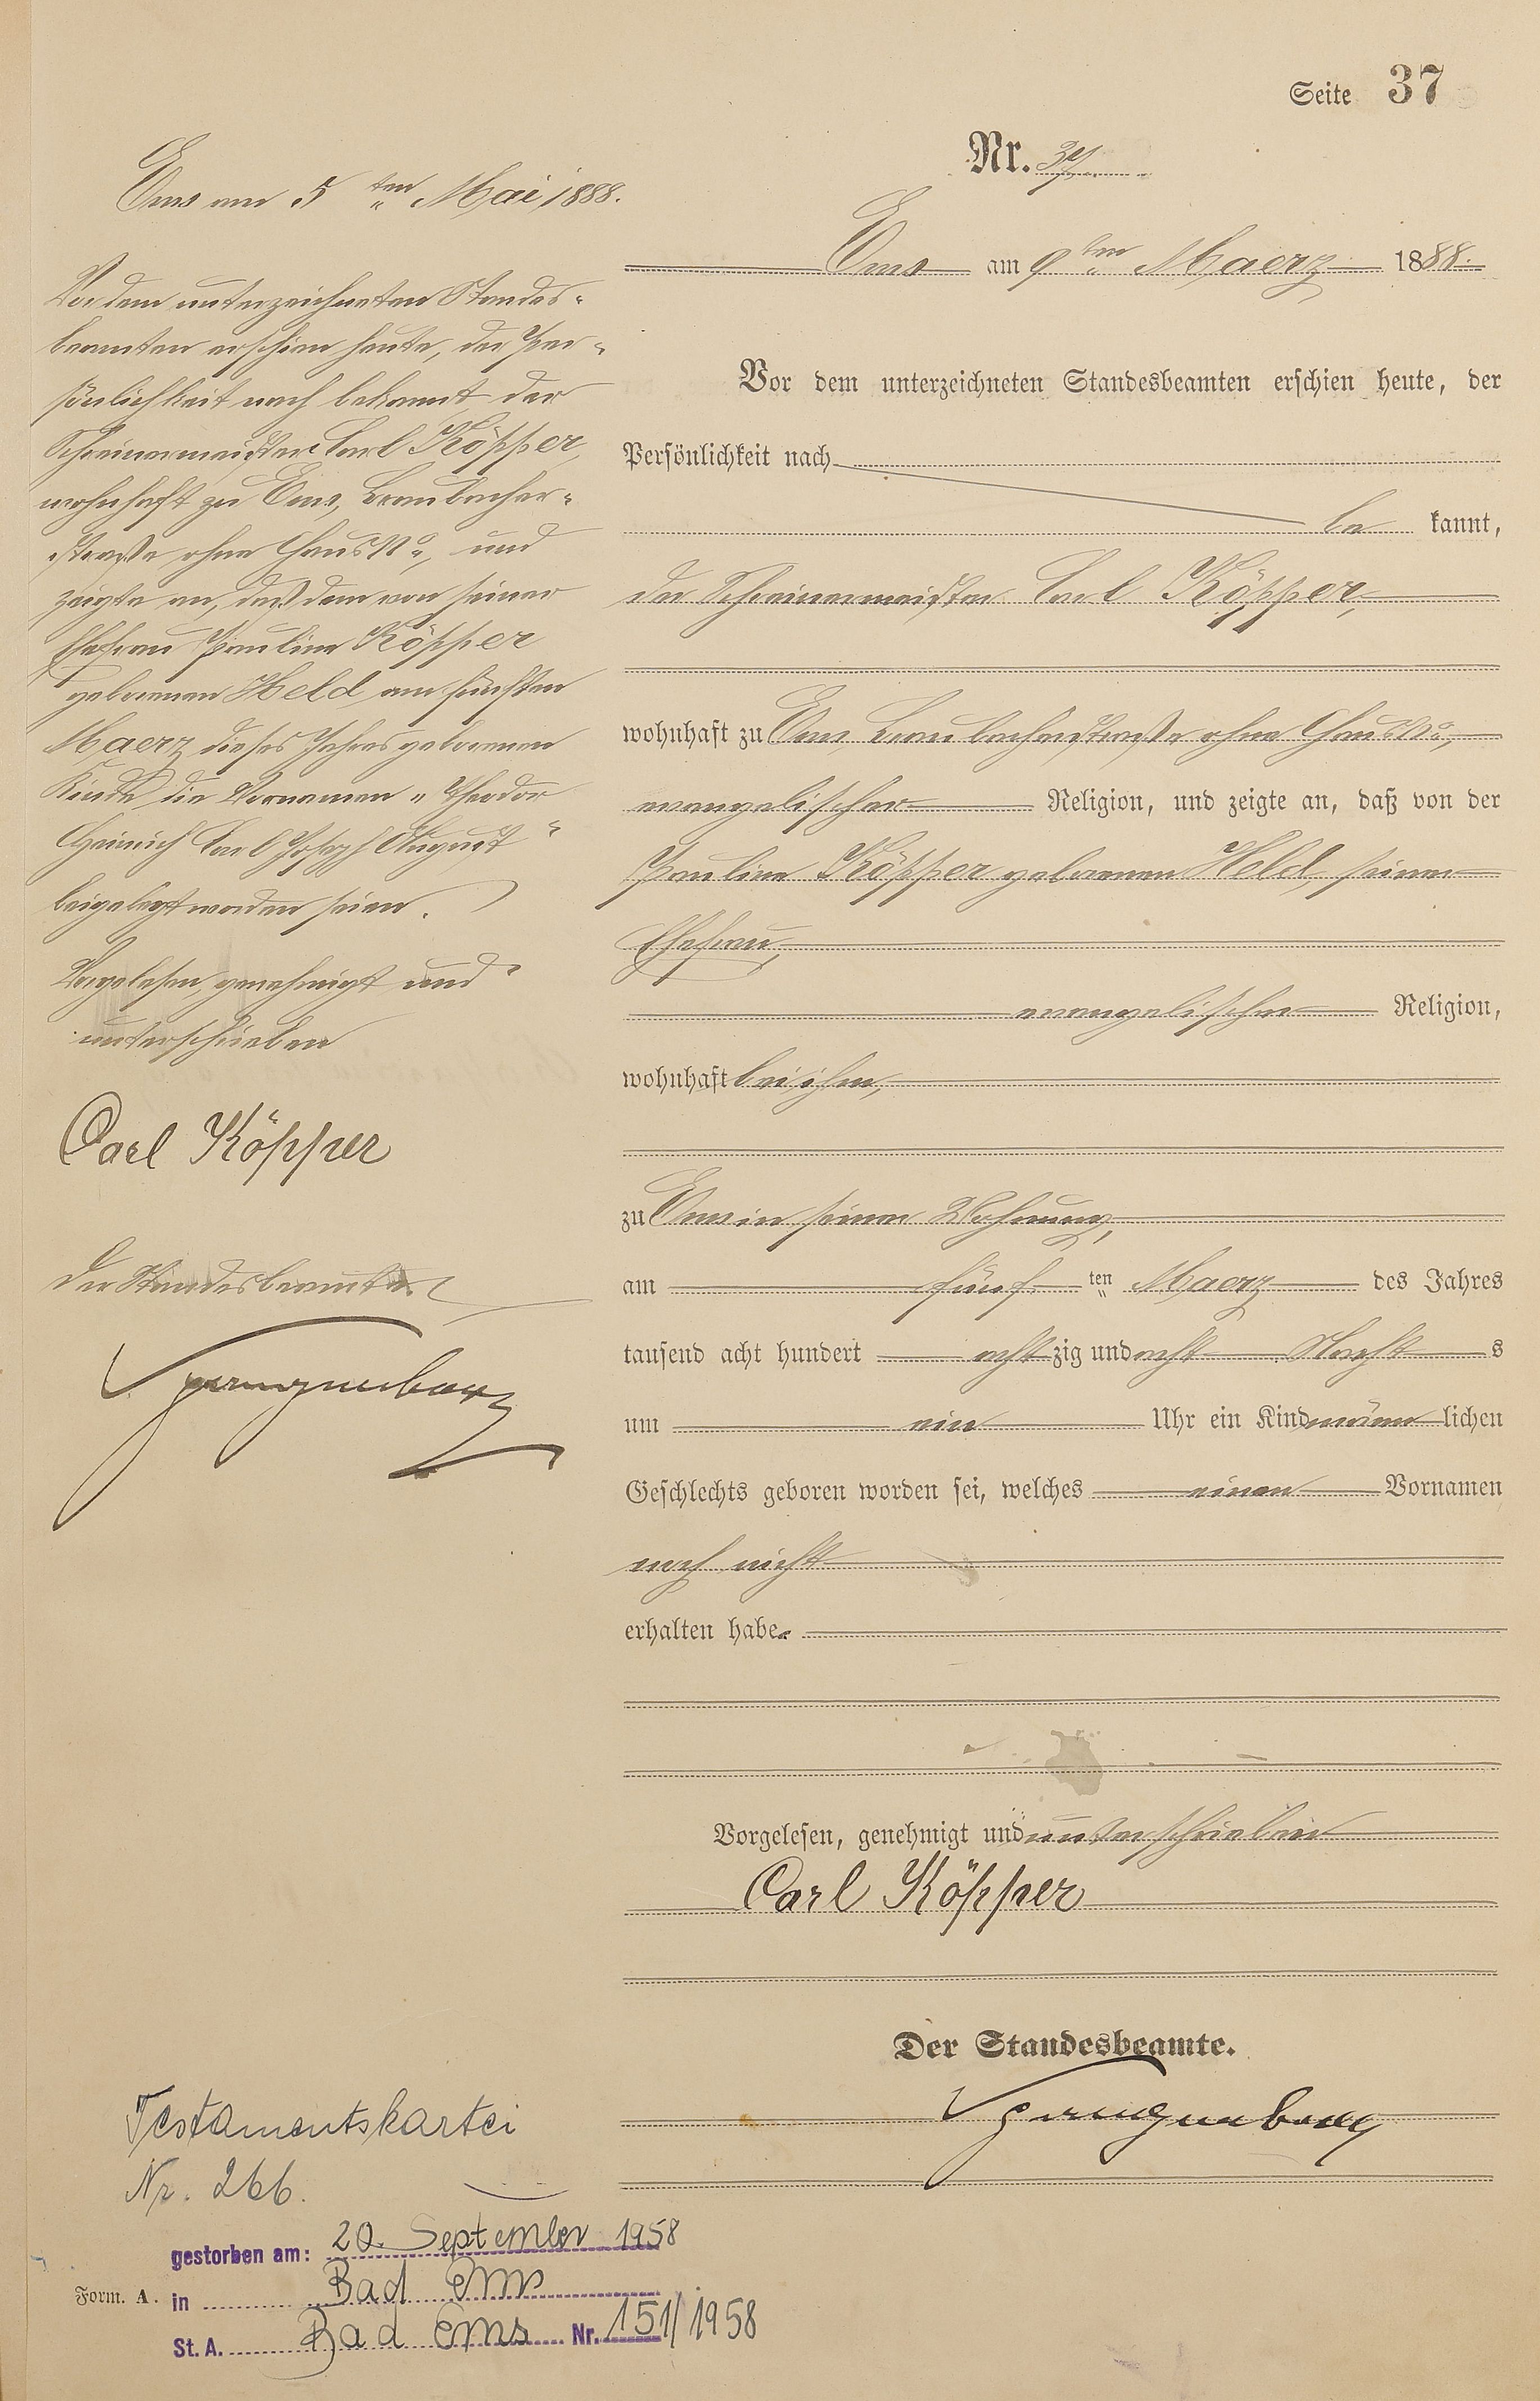 Seite 37
Nr. 37.
Ems am 9ten Maerz 1888.
Vor dem unterzeichneten Standesbeamten erschien heute, der
Persönlichkeit nach
be kannt,
der Schreinermeister Carl Köpper,
wohnhaft zu Ems, Braubacherstraße ohne Haus No,
evangelischer Religion, und zeigte an, daß von der
Pauline Köpper geborenen Held, seiner
Ehefrau,
evangelischer Religion,
wohnhaft bei ihm,
zu Ems in seiner Wohnung,
am fünf ten Maerz des Jahres
tausend acht hundert acht zig und acht Nacht s
um ein Uhr ein Kind männ lichen
Geschlechts geboren worden sei, welches einen Vornamen
noch nicht
erhalten habe.
Vorgelesen, genehmigt und unterschrieben
Carl Köpper
Der Standesbeamte.
Ems am 5ten Mai 1888.
Vor dem unterzeichneten Standes-
beamten erschien heute, der Per-
sönlichkeit nach bekannt, der
Schreinermeister Carl Köpper,
wohnhaft zu Ems, Braubacher-
straße ohne Haus No, und
zeigte an, daß dem von seiner
Ehefrau Pauline Köpper
geborenen Held am fünften
Maerz dieses Jahres geborenen
Kinde die Vornamen „Theodor
Heinrich Carl Joseph August“
beigelegt worden seien.
Vorgelesen, genehmigt und
unterschrieben
Carl Köpper
Der Standesbeamte
Testamentskartei
Nr. 266.
gestorben am: 20. September 1958
Form. A. in Bad Ems
St. A. Bad Ems Nr. 151/1958